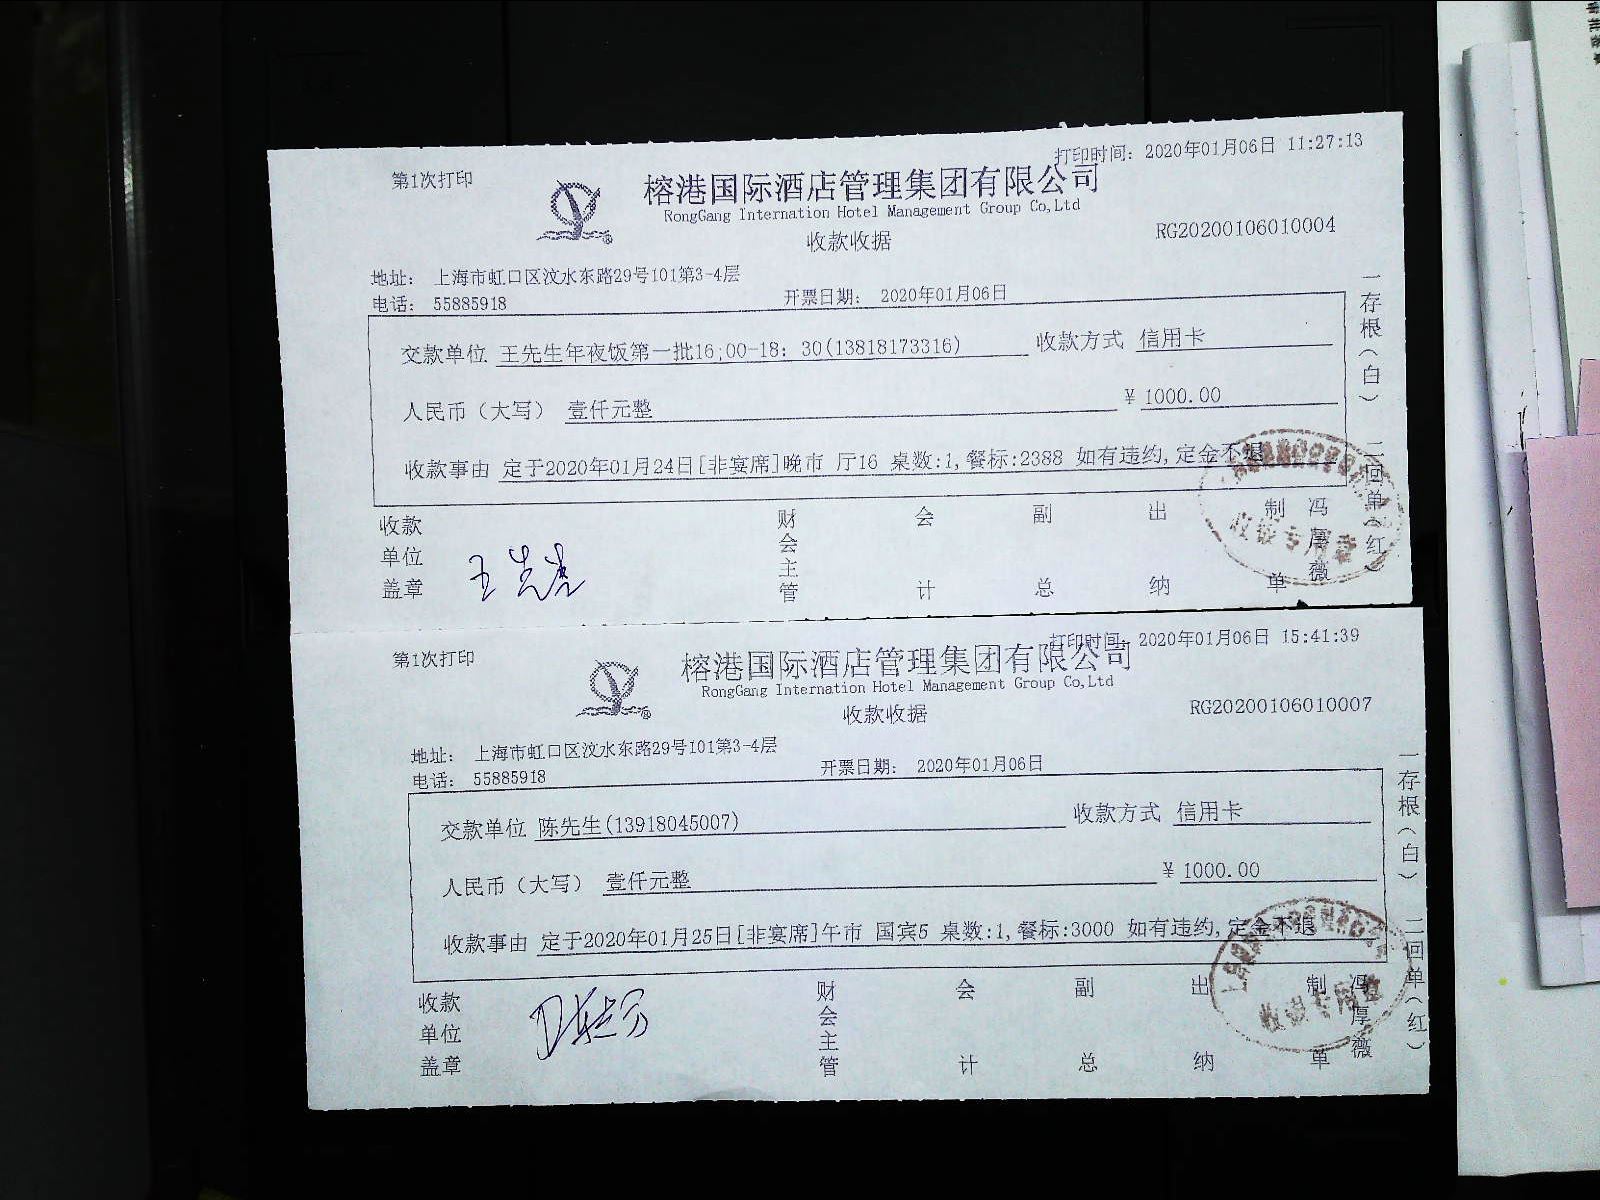 第1次打印
打印时间：2020年01月06日 11:27:13
榕港国际酒店管理集团有限公司
RongGang Internation Hotel Management Group Co,Ltd
收款收据
RG20200106010004
地址： 上海市虹口区汶水东路29号101第3-4层
电话： 55885918
开票日期： 2020年01月06日
交款单位 王先生年夜饭第一批16;00-18：30(13818173316) 收款方式 信用卡
人民币（大写） 壹仟元整 ¥ 1000.00
收款事由 定于2020年01月24日[非宴席]晚市 厅16 桌数:1,餐标:2388 如有违约,定金不退
一存根（白） 二回单（红）
收款单位盖章
财会主管 会计 副总 出纳 制单 冯厚薇
收银专用章
第1次打印
打印时间：2020年01月06日 15:41:39
榕港国际酒店管理集团有限公司
RongGang Internation Hotel Management Group Co,Ltd
收款收据
RG20200106010007
地址： 上海市虹口区汶水东路29号101第3-4层
电话： 55885918
开票日期： 2020年01月06日
交款单位 陈先生(13918045007) 收款方式 信用卡
人民币（大写） 壹仟元整 ¥ 1000.00
收款事由 定于2020年01月25日[非宴席]午市 国宾5 桌数:1,餐标:3000 如有违约,定金不退
一存根（白） 二回单（红）
收款单位盖章
财会主管 会计 副总 出纳 制单 冯厚薇
收银专用章